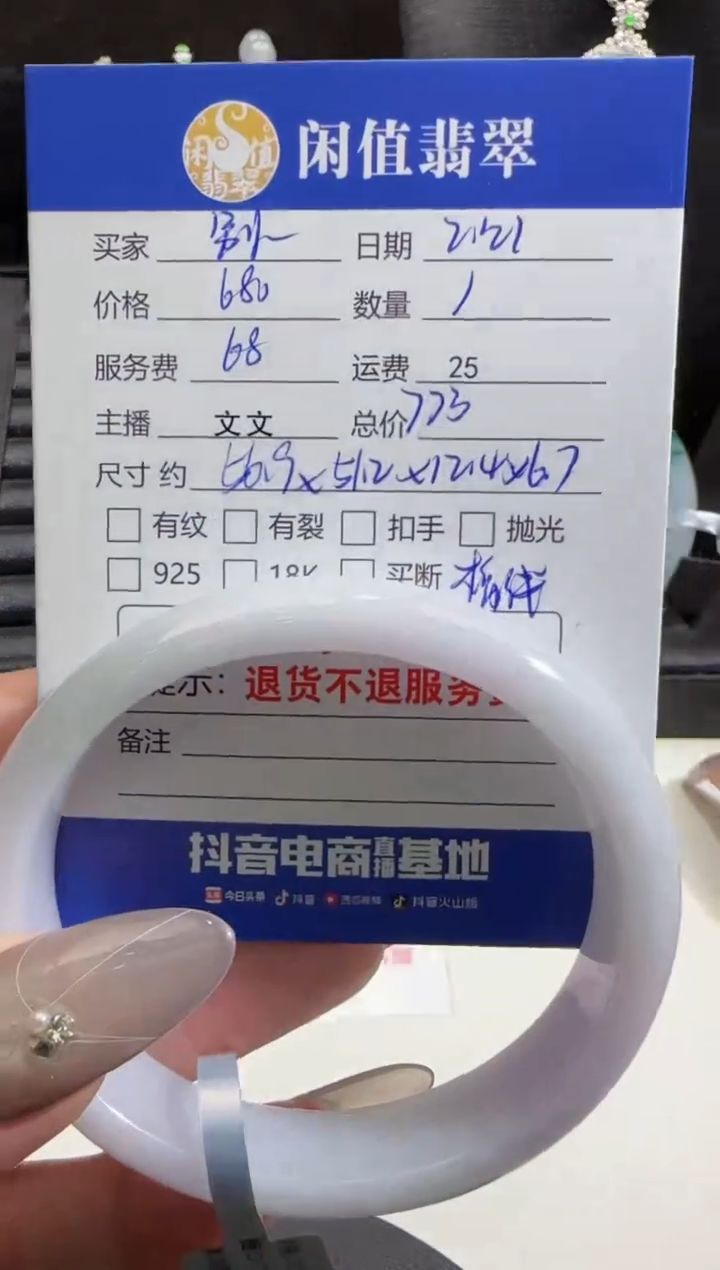 闲值翡翠
闲值翡翠
买家 日期 2.21
价格 680 数量 1
服务费 68 运费 25
主播 文文 总价 773
尺寸 约 56.9x51.2x12.4x6.7
有纹 有裂 扣手 抛光
925 18K 买断 棉线
提示：退货不退服务费
备注
抖音电商直播基地
今日头条 抖音 西瓜视频 抖音火山版